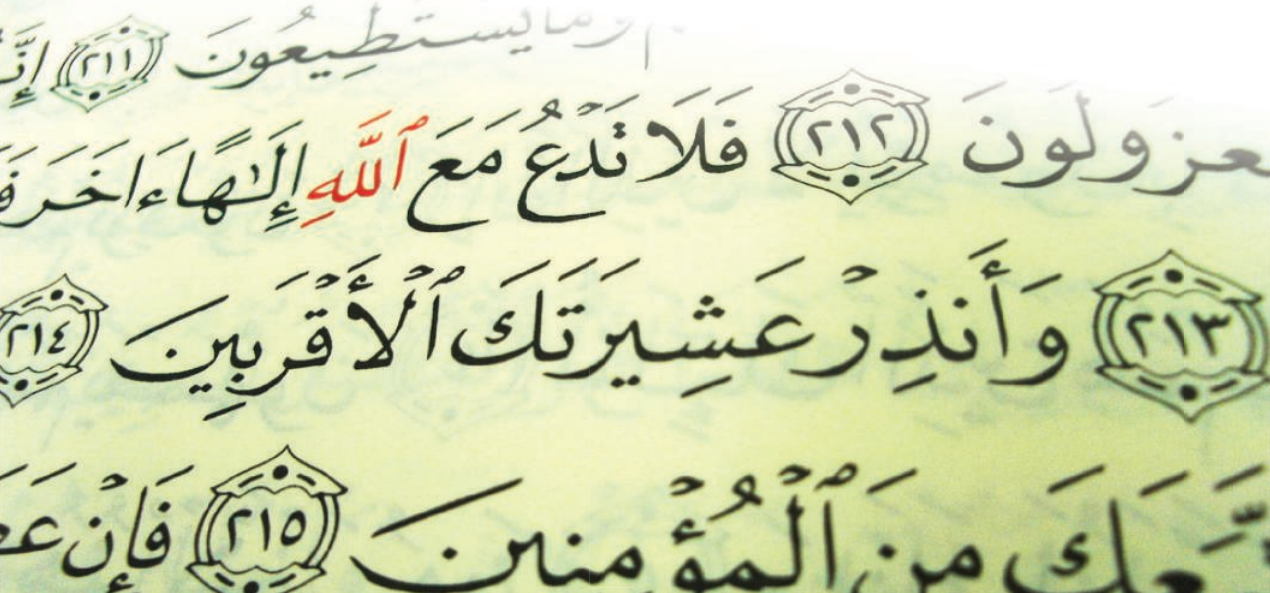 وَمَا يَسْتَطِيعُونَ ٢١١
٢١٢ فَلَا تَدْعُ مَعَ ٱللَّهِ إِلَٰهًا ءَاخَرَ
٢١٣ وَأَنذِرْ عَشِيرَتَكَ ٱلْأَقْرَبِينَ ٢١٤
مِنَ ٱلْمُؤْمِنِينَ ٢١٥ فَإِنْ